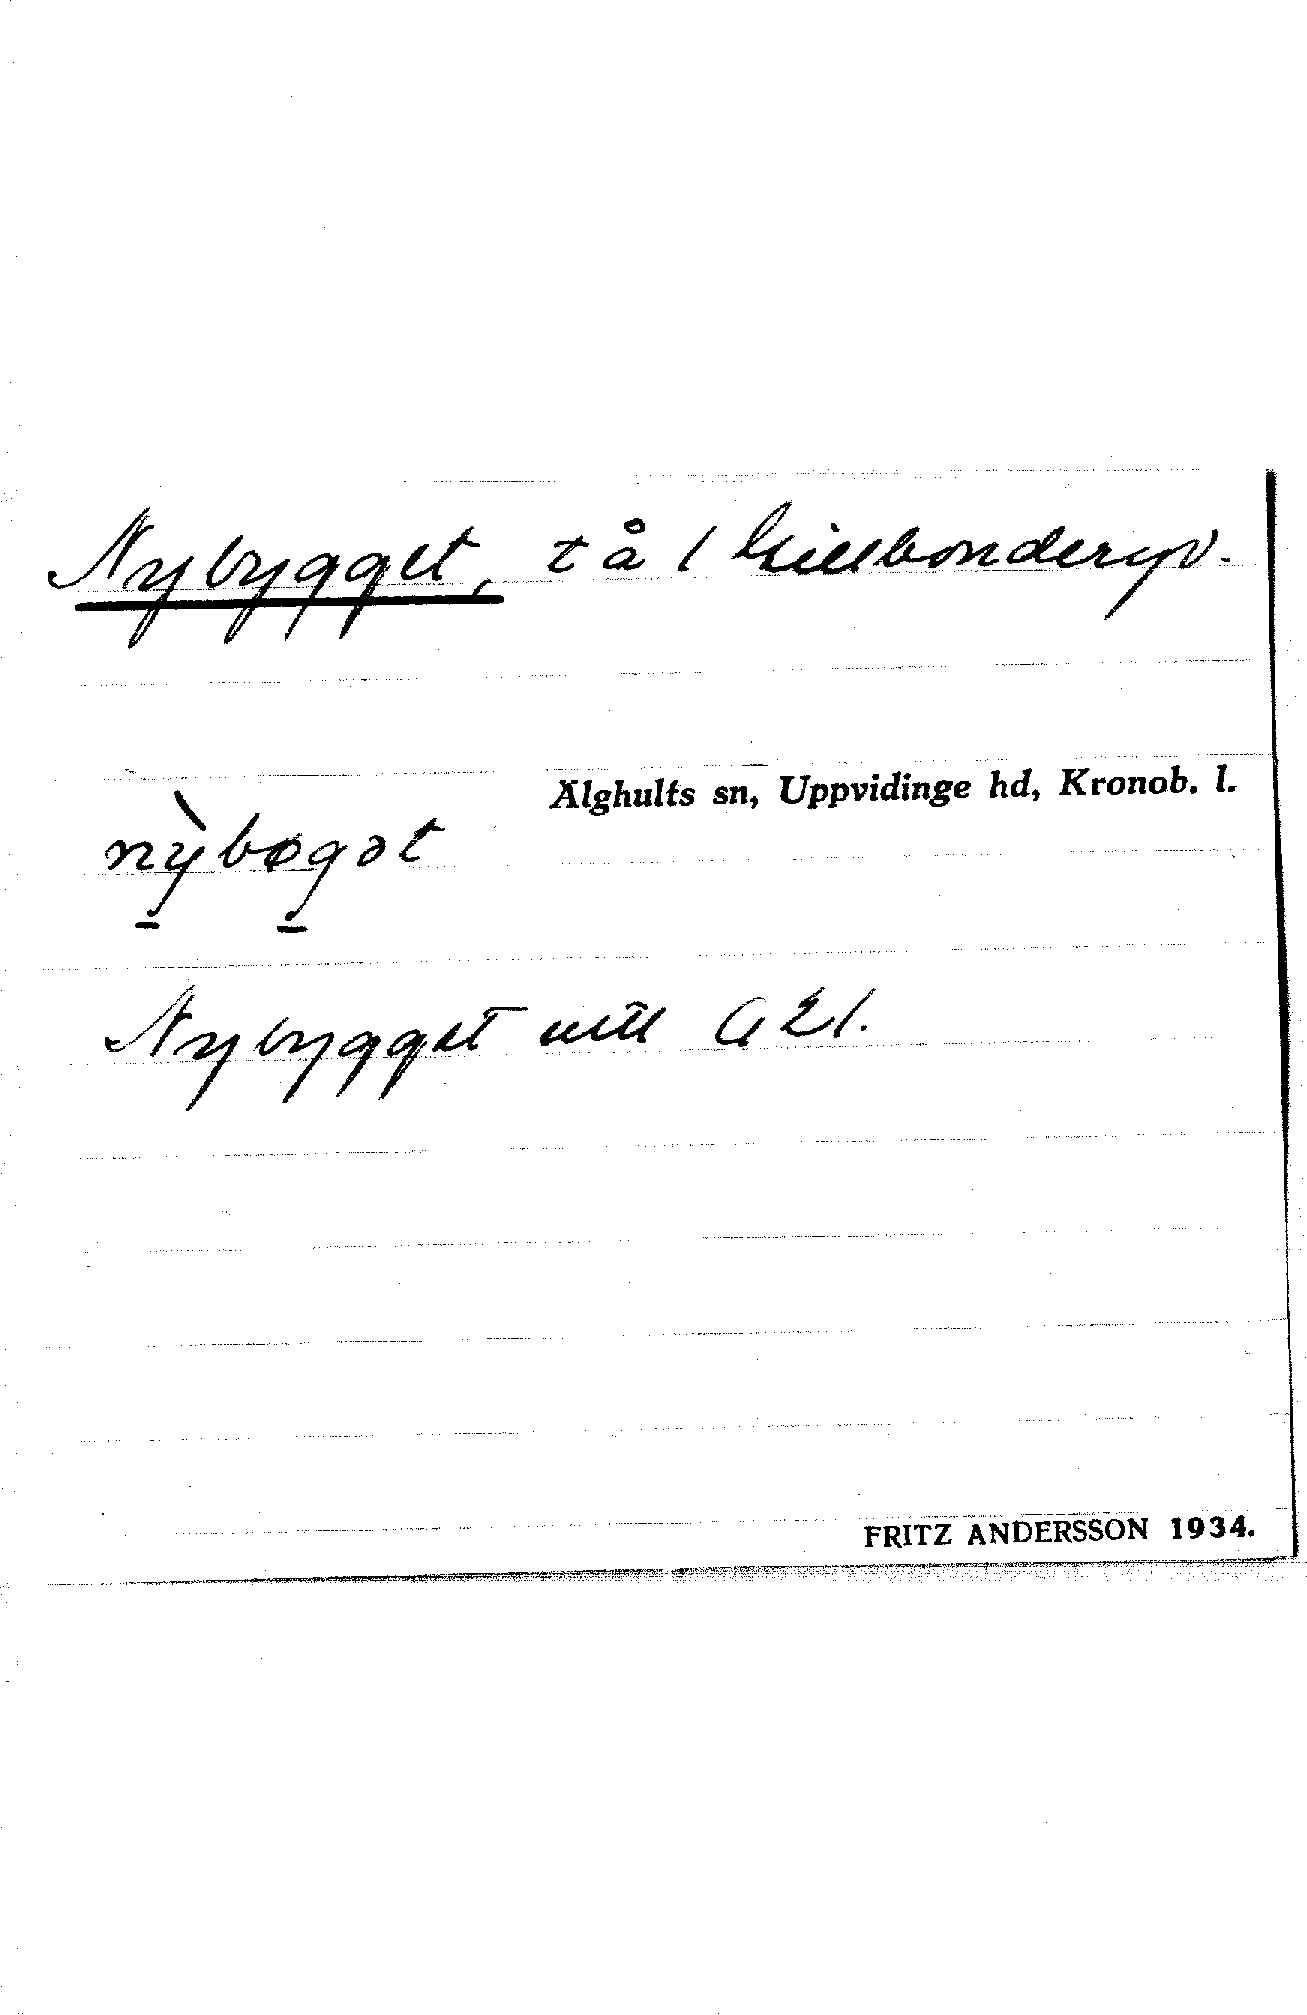 Nybygget, tå 1 Lillbonderyd.
Älghults sn, Uppvidinge hd, Kronob. l.
nỳbøgət
Nybygget
FRITZ ANDERSSON 1934.